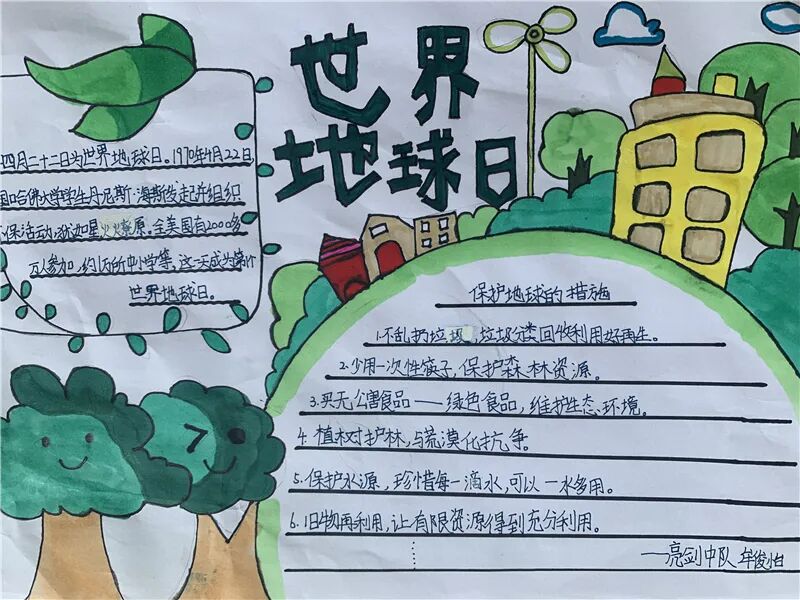 世界
地球日
四月二十二日为世界地球日。1970年4月22日
国哈佛大学学生丹尼斯·海斯发起并组织
保活动 犹如星火燎原。全美国有2000多
万人参加,约1万所中小学等,这一天成为第一个
世界地球日。
保护地球的措施
1.不乱扔垃圾,垃圾分类回收利用好再生。
2.少用一次性筷子,保护森林资源。
3.买无公害食品——绿色食品,维护生态环境。
4.植树护林,与荒漠化抗争。
5.保护水源,珍惜每一滴水,可以一水多用。
6.旧物再利用,让有限资源得到充分利用。
——亮剑中队 牟俊怡